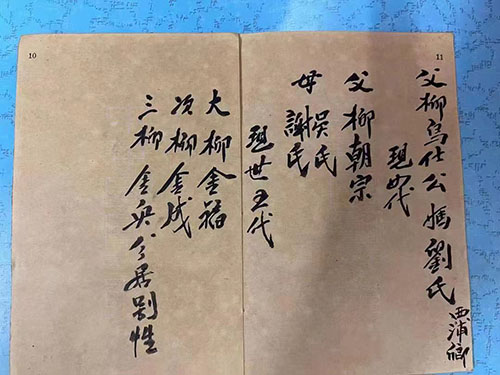 11
父柳烏仕公媽劉氏
西浦卿
現四代
父柳朝宗
母吳氏
謝氏
現世五代
10
大柳金福
次柳金成
三柳金 分居别性